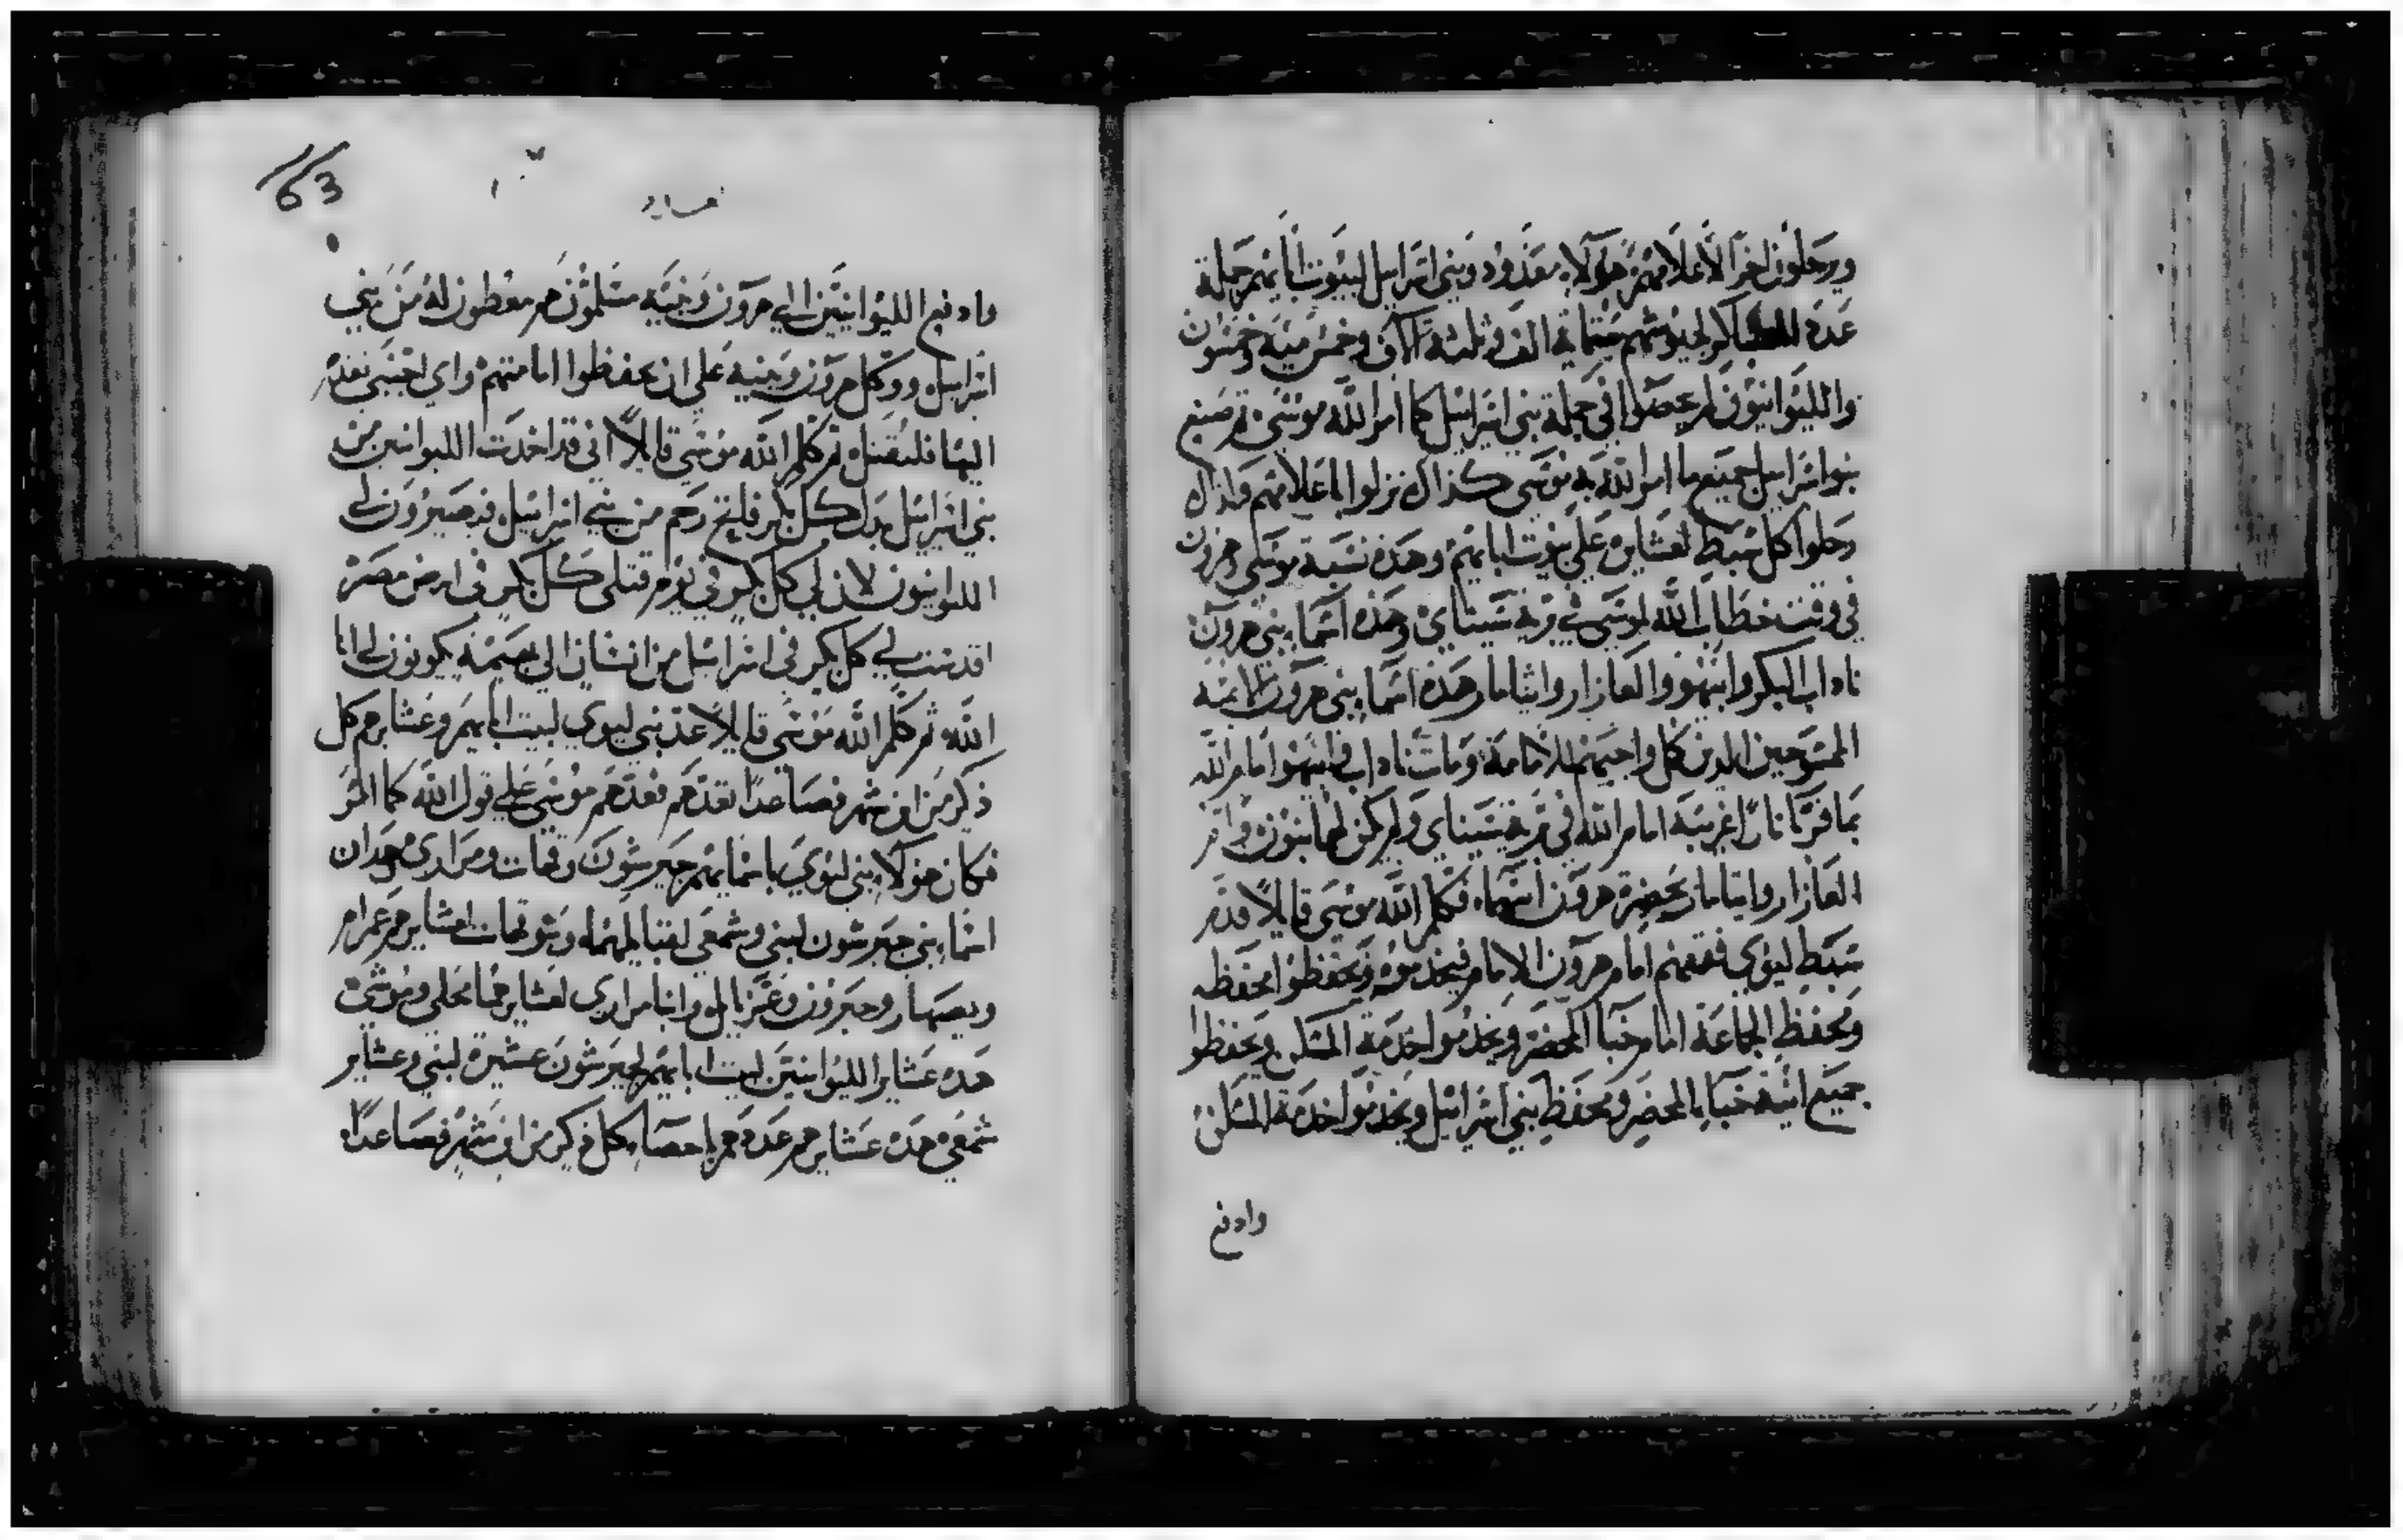 ويرحلون اخرًا لاعلامهم هولاء معدود وبني اسراييل لبيوت ابايهم جملة
عدة العساكر لجيوشهم ستماية الف وثلثة الاف وخمس مية وخمسون
والليوانيون لم يحصوا في جملة بني اسراييل كما امر الله موسى ثم صنع
بنو اسراييل جميع ما امر الله به موسى كذاك نزلوا باعلامهم وكذاك
رحلوا كل سبط لعشايره على بيوت ابايهم وهذه نسبة موسى وهرون
في وقت خطاب الله لموسى في برية سيناي وهذه اسماء بني هرون
ناداب البكر وابيهو والعازار وايثامار هذه اسماء بني هرون الايمة
الممسوحين الدين كل واجبهم للامامة ومات ناداب وابيهوا امام الله
بما قربا نارًا غريبة امام الله في برية سيناي ولم يكن لهما بنون وام
العازار وايتامار بحضرة هرون ابيهما فكلم الله موسى قايلًا قدم
سبط ليوي فقفهم امام هرون الامام فيخدموه ويحفظوا محفظه
ومحفظ الجماعة امام خبا المحضر ويخدموا خدمة المسكن ويحفظوا
جميع انية خباء المحضر ومحفظ بني اسراييل ويخدموا خدمة المسكن
وادفع
63
وادفع الليوانيين الي هرون وبنيه مسلمون هم معطون له من بني
اسراييل ووكل هرون وبنيه على ان يحفظوا امامتهم واي اجنبي تقدم
اليها فليقتل ثم كلم الله موسى قايلًا اني قد اخدت الليوانيين من
بني اسراييل بدل كل بكر فاتح رحم من بني اسراييل فيصيرون لي
الليوانيون لان لي كل بكر في يوم قتلي كل بكر في ارض مصر
اقدست لي كل بكر في اسراييل من انسان الي بهيمة يكونون لي انا
الله ثم كلم الله موسى قايلًا عد بني ليوي لبيت ابايهم وعشايرهم كل
ذكر من ابن شهر فصاعدًا تعدهم فعدهم موسى على قول الله كما امر
فكان هولاء بني ليوي باسمايهم جيرشون وقهات ومراري وهدان
اسماء بني جيرشون لبني وشمعي لقبايلهما وبنو قهات لعشايرهم عمرام
ويصهار وحبرون وعزيايل وابنا مراري لعشايرهما محلي وموشي
هده عشاير الليوانيين لبيت ابايهم لجيرشون عشيرة لبني وعشاير
شمعي هده عشايرهم عدة هم باحصاء كل ذكر من ابن شهر فصاعدًا